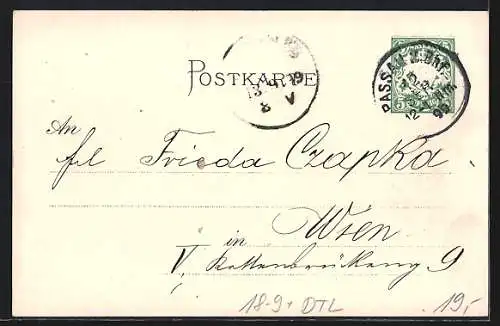 POSTKARTE
PASSAU
12
99
An
frl Frieda Czapka
in Wien
V, Kettenbrückeng 9
18-9+ DTL
19,-